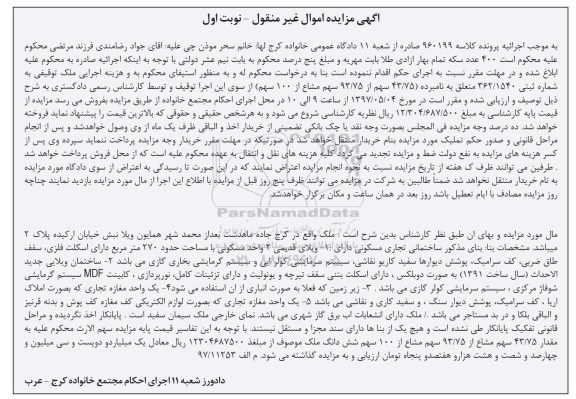 آگهی مزایده اموال غیر منقول - نوبت اول
به موجب اجرائیه پرونده کلاسه ۹۶۰۱۹۹ صادره از شعبه ۱۱ دادگاه عمومی خانواده کرج لها: خانم سحر موذن چی علیه: اقای جواد رضامندی فرزند مرتضی محکوم
علیه محکوم است ۴۰۰ عدد سکه تمام بهار ازادی طلا بابت مهریه و مبلغ پنج درصد محکوم به بابت نیم عشر دولتی با توجه به اینکه اجرائیه صادره به محکوم علیه
ابلاغ شده و در مهلت مقرر نسبت به اجرای حکم اقدام ننموده است بنا به درخواست محکوم له و به منظور استیفای محکوم به و هزینه اجرایی ملک توقیفی به
شماره ثبتی ۳۶۲/۱۵۴۰ متعلق به نامبرده (۴۳/۷۵ سهم از ۹۳/۷۵ سهم مشاع از ۱۰۰ سهم) از سوی این اجرا توقیف و توسط کارشناس رسمی دادگستری به شرح
ذیل توصیف و ارزیابی شده و مقرر است در مورخ ۱۳۹۷/۰۵/۰۴ از ساعت ۹ الی ۱۰ در محل اجرای احکام مجتمع خانواده از طریق مزایده بفروش می رسد مزایده از
قیمت پایه کارشناسی به مبلغ ۱۲/۳۰۴/۶۸۷/۵۰۰ ریال نظریه کارشناسی شروع می شود و به هرشخص حقیقی و حقوقی که بالاترین قیمت را پیشنهاد نماید فروخته
خواهد شد. ده درصد وجه مزایده فی المجلس بصورت وجه نقد یا چک بانکی تضمینی از خریدار اخذ و الباقی ظرف یک ماه از وی وصول خواهدشد و پس از انجام
مراحل قانونی و صدور حکم تملیک مورد مزایده بنام خریدار منتقل خواهد شد در صورتیکه در مهلت مقرر خریدار وجه مزایده پرداخت ننماید سپرده وی پس از
کسر هزینه های مزایده به نفع دولت ضبط و مزایده تجدید می گردد کلیه هزینه های نقل و انتقال به عهده محکوم علیه است که از محل فروش پرداخت خواهد شد
. طرفین می توانند ظرف ک هفته از تاریخ مزایده نسبت به نحوه انجام مزایده اعتراض نمایند که در این صورت تا رسیدگی به اعتراض از سوی دادگاه مورد مزایده
به نام خریدار منتقل نخواهد شد. ضمناً طالبین به شرکت در مزایده می توانند ظرف پنج روز قبل از مزایده با اطلاع این اجرا از مال مورد مزایده بازدید نمایند چناچه
روز مزایده مصادف با ایام تعطیل باشد روز بعد در همان ساعت و مکان برگزار خواهدشد.
ParsNamadData
مال مورد مزایده و بهای ان طبق نظر کارشناس بدین شرح است . ملک واقع در کرج جاده ماهدشت بعداز محمد شهر همایون ویلا نبش خیابان ارکیده پلاک ۲
میباشد. مشخصات بنا: بنای مذکور ساختمانی تجاری مسکونی دارای :۱- ویلای قدیمی ۲ واحد مسکونی با مساحت حدود ۲۷۰ متر مربع دارای اسکلت فلزی، سقف
طاق ضربی، کف سرامیک، پوشش دیوارها سفید کاریو نقاشی، سیستم سرمایشی کولر ابی و سیستم گرمایشی بخاری گازی می باشد ۲- ساختمان ویلایی جدید
الاحداث (سال ساخت ۱۳۹۱) به صورت دوبلکس ، دارای اسکلت بتنی سقف تیرچه و یونولیت و دارای تزئینات کامل، نورپردازی ، کابینت MDF سیستم گرمایشی
شوفاژ مرکزی ، سیستم سرمایشی کولر گازی می باشد . ۳- زیر زمین که فعلا به صورت انباری از ان استفاده می شود۴- یک واحد مغازه تجاری که بصورت املاک
اریا ، کف سرامیک، پوشش دیوار سنگ ، و سفید کاری و نقاشی می باشد ۵- یک واحد مغازه تجاری که بصورت لوازم الکتریکی کف مغازه کف پوش و بدنه قرنیز
و الباقی بلکا و در ید مستاجر می باشد ./ ملک دارای انشعابات اب برق گاز شهری می باشد. نمای خارجی ملک سیمان سفید است . پایانکار اخذ نگردیده و مراحل
قانونی تفکیک پایانکار طی نشده است و هیچ یک از بنا ها دارای سند مجزا و مستقل نیستند. با توجه به این تفاسیر قیمت پایه مزایده سهم الارث محکوم علیه به
مقدار ۴۳/۷۵ سهم مشاع از ۹۳/۷۵ سهم مشاع از ۱۰۰ سهم شش دانگ ملک موصوف از مبلغ ۱۲۳۰۴۶۸۷۵۰۰ ریال معادل یک میلیاردو دویست و سی میلیون و
چهارصد و شصت و هشت هزارو هفتصدو پنجاه تومان ارزیابی و به مزایده گذاشته می شود. م الف ۹۷/۱۱۲۵۳
دادورز شعبه ۱۱ اجرای احکام مجتمع خانواده کرج - عرب